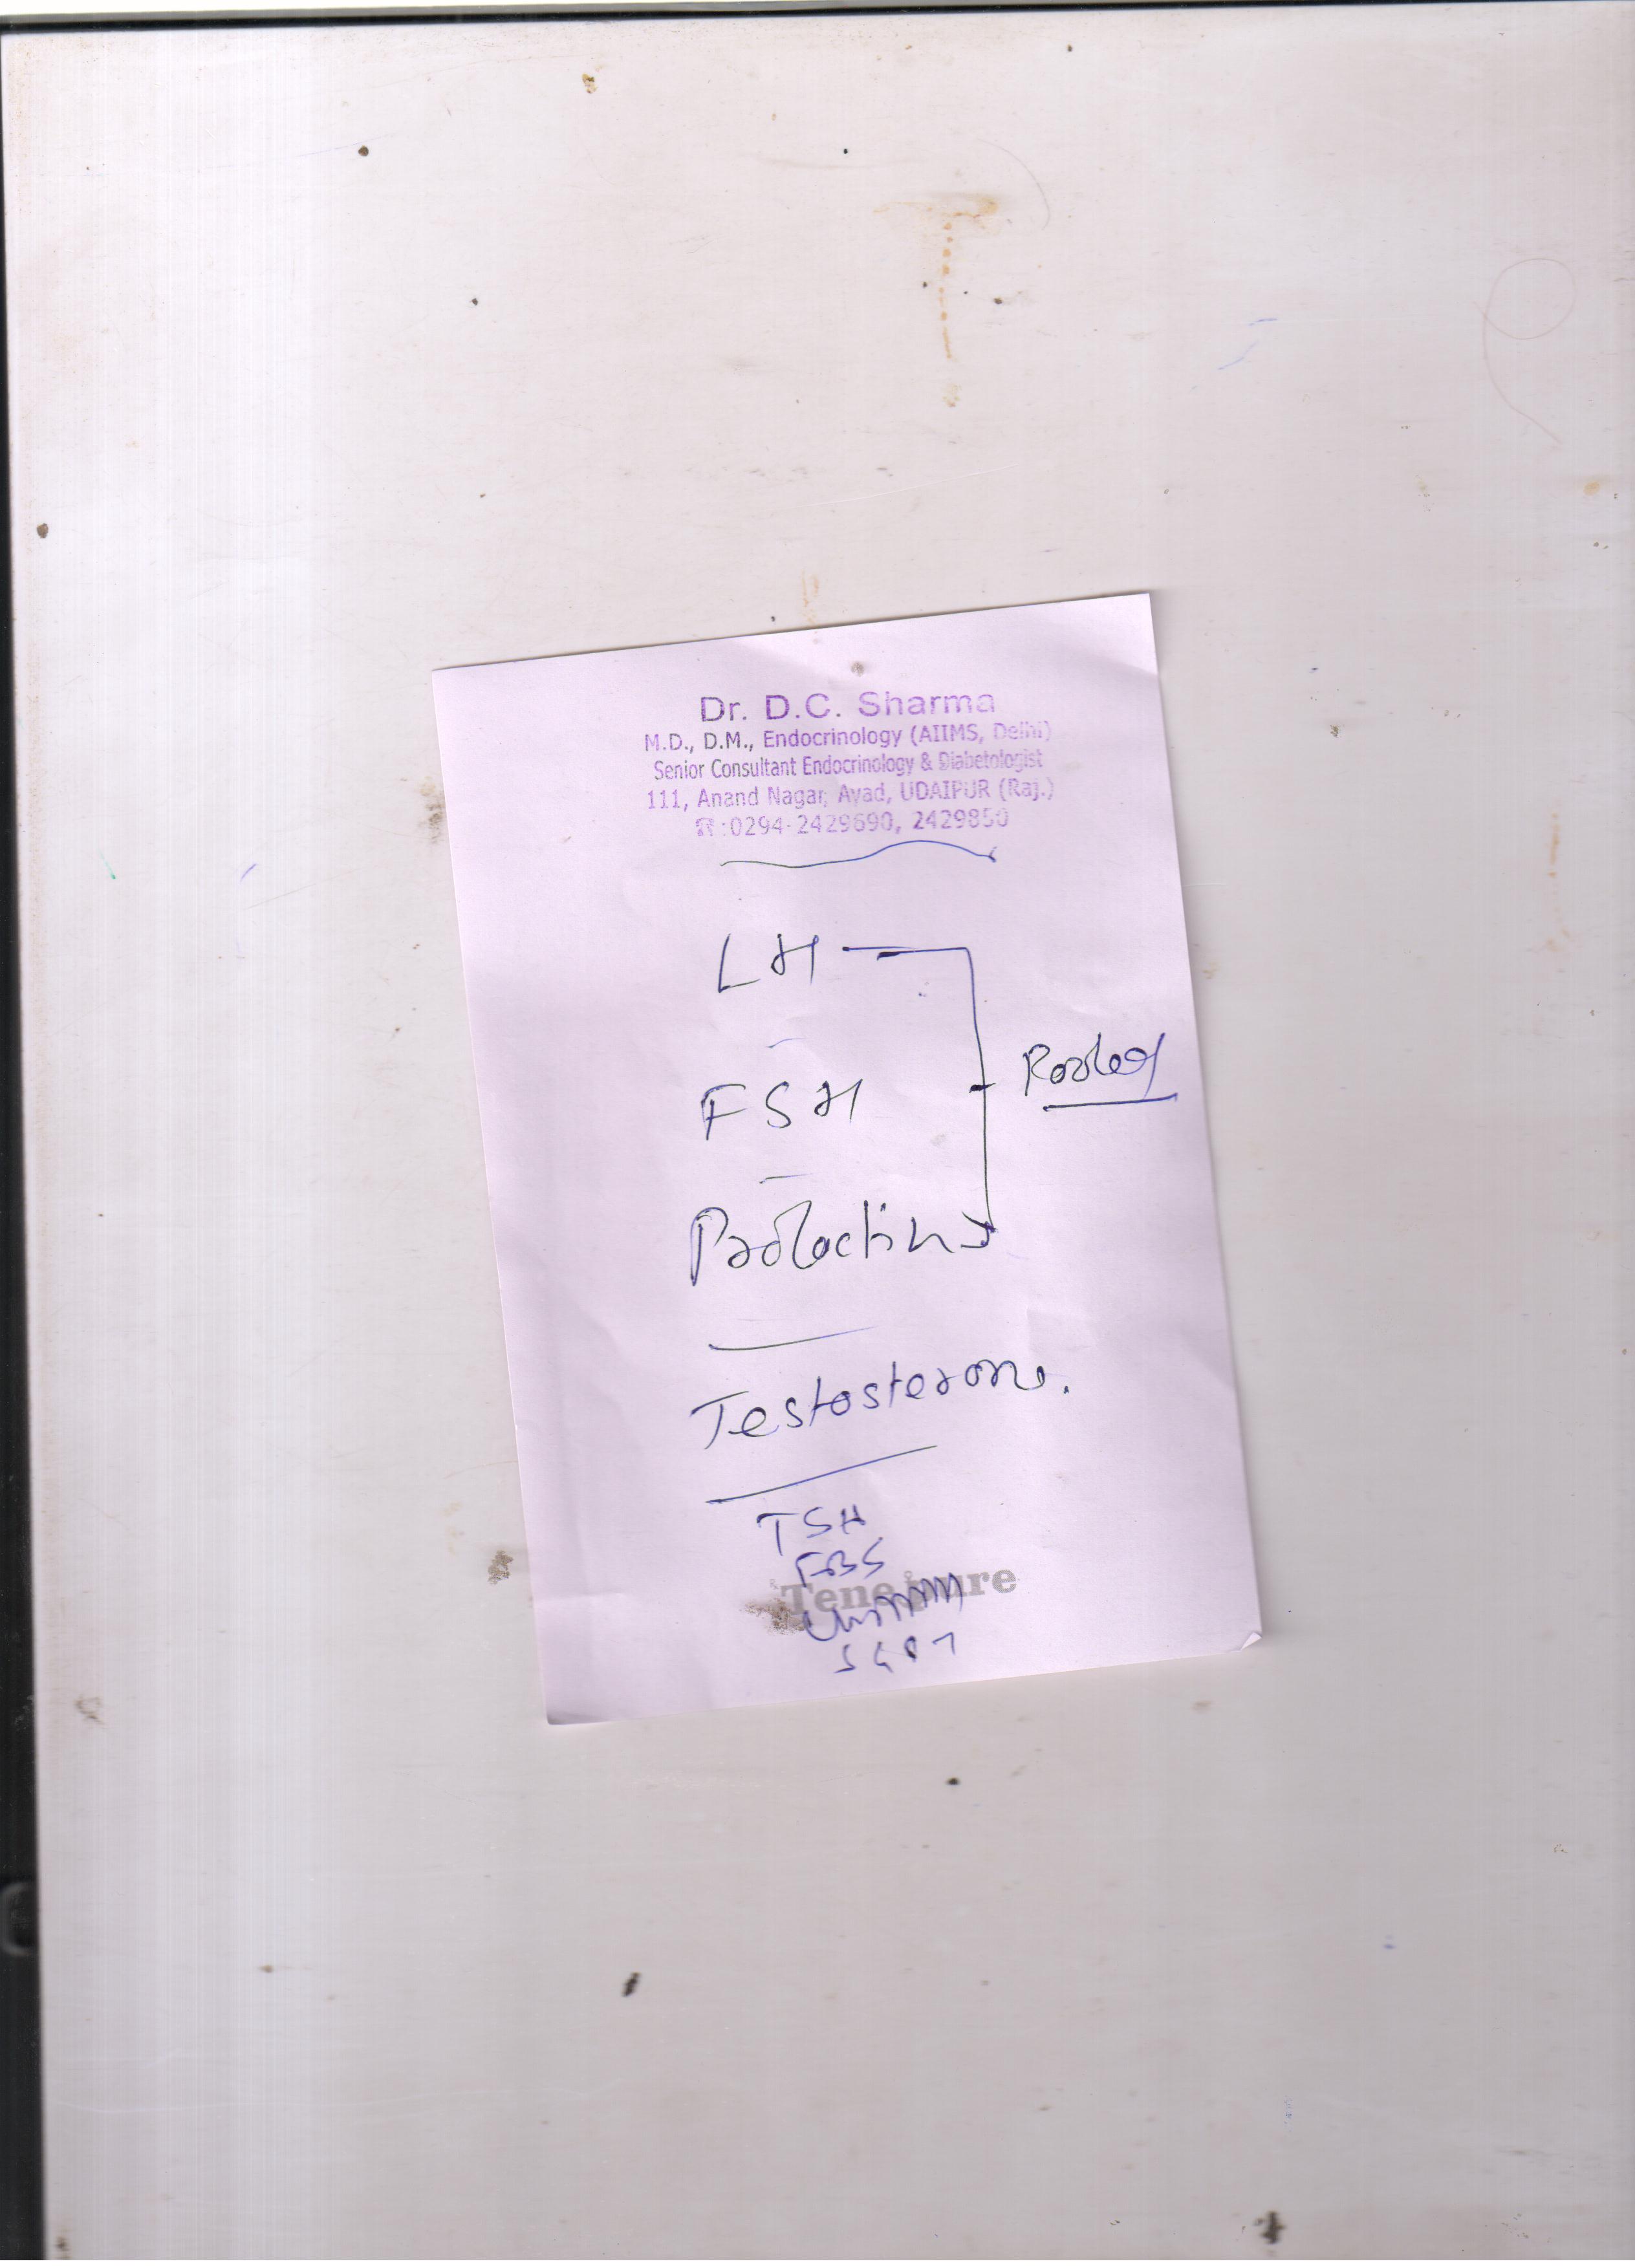 Dr. D.C. Sharma
M.D., D.M., Endocrinology (AIIMS, Delhi)
Senior Consultant Endocrinology & Diabetologist
111, Anand Nagar, Ayad, UDAIPUR (Raj.)
☎:0294-2429690, 2429850
LH
FSH
Pooled
Prolactin
Testosterone.
TSH
FBS
Tenepure
SGPT